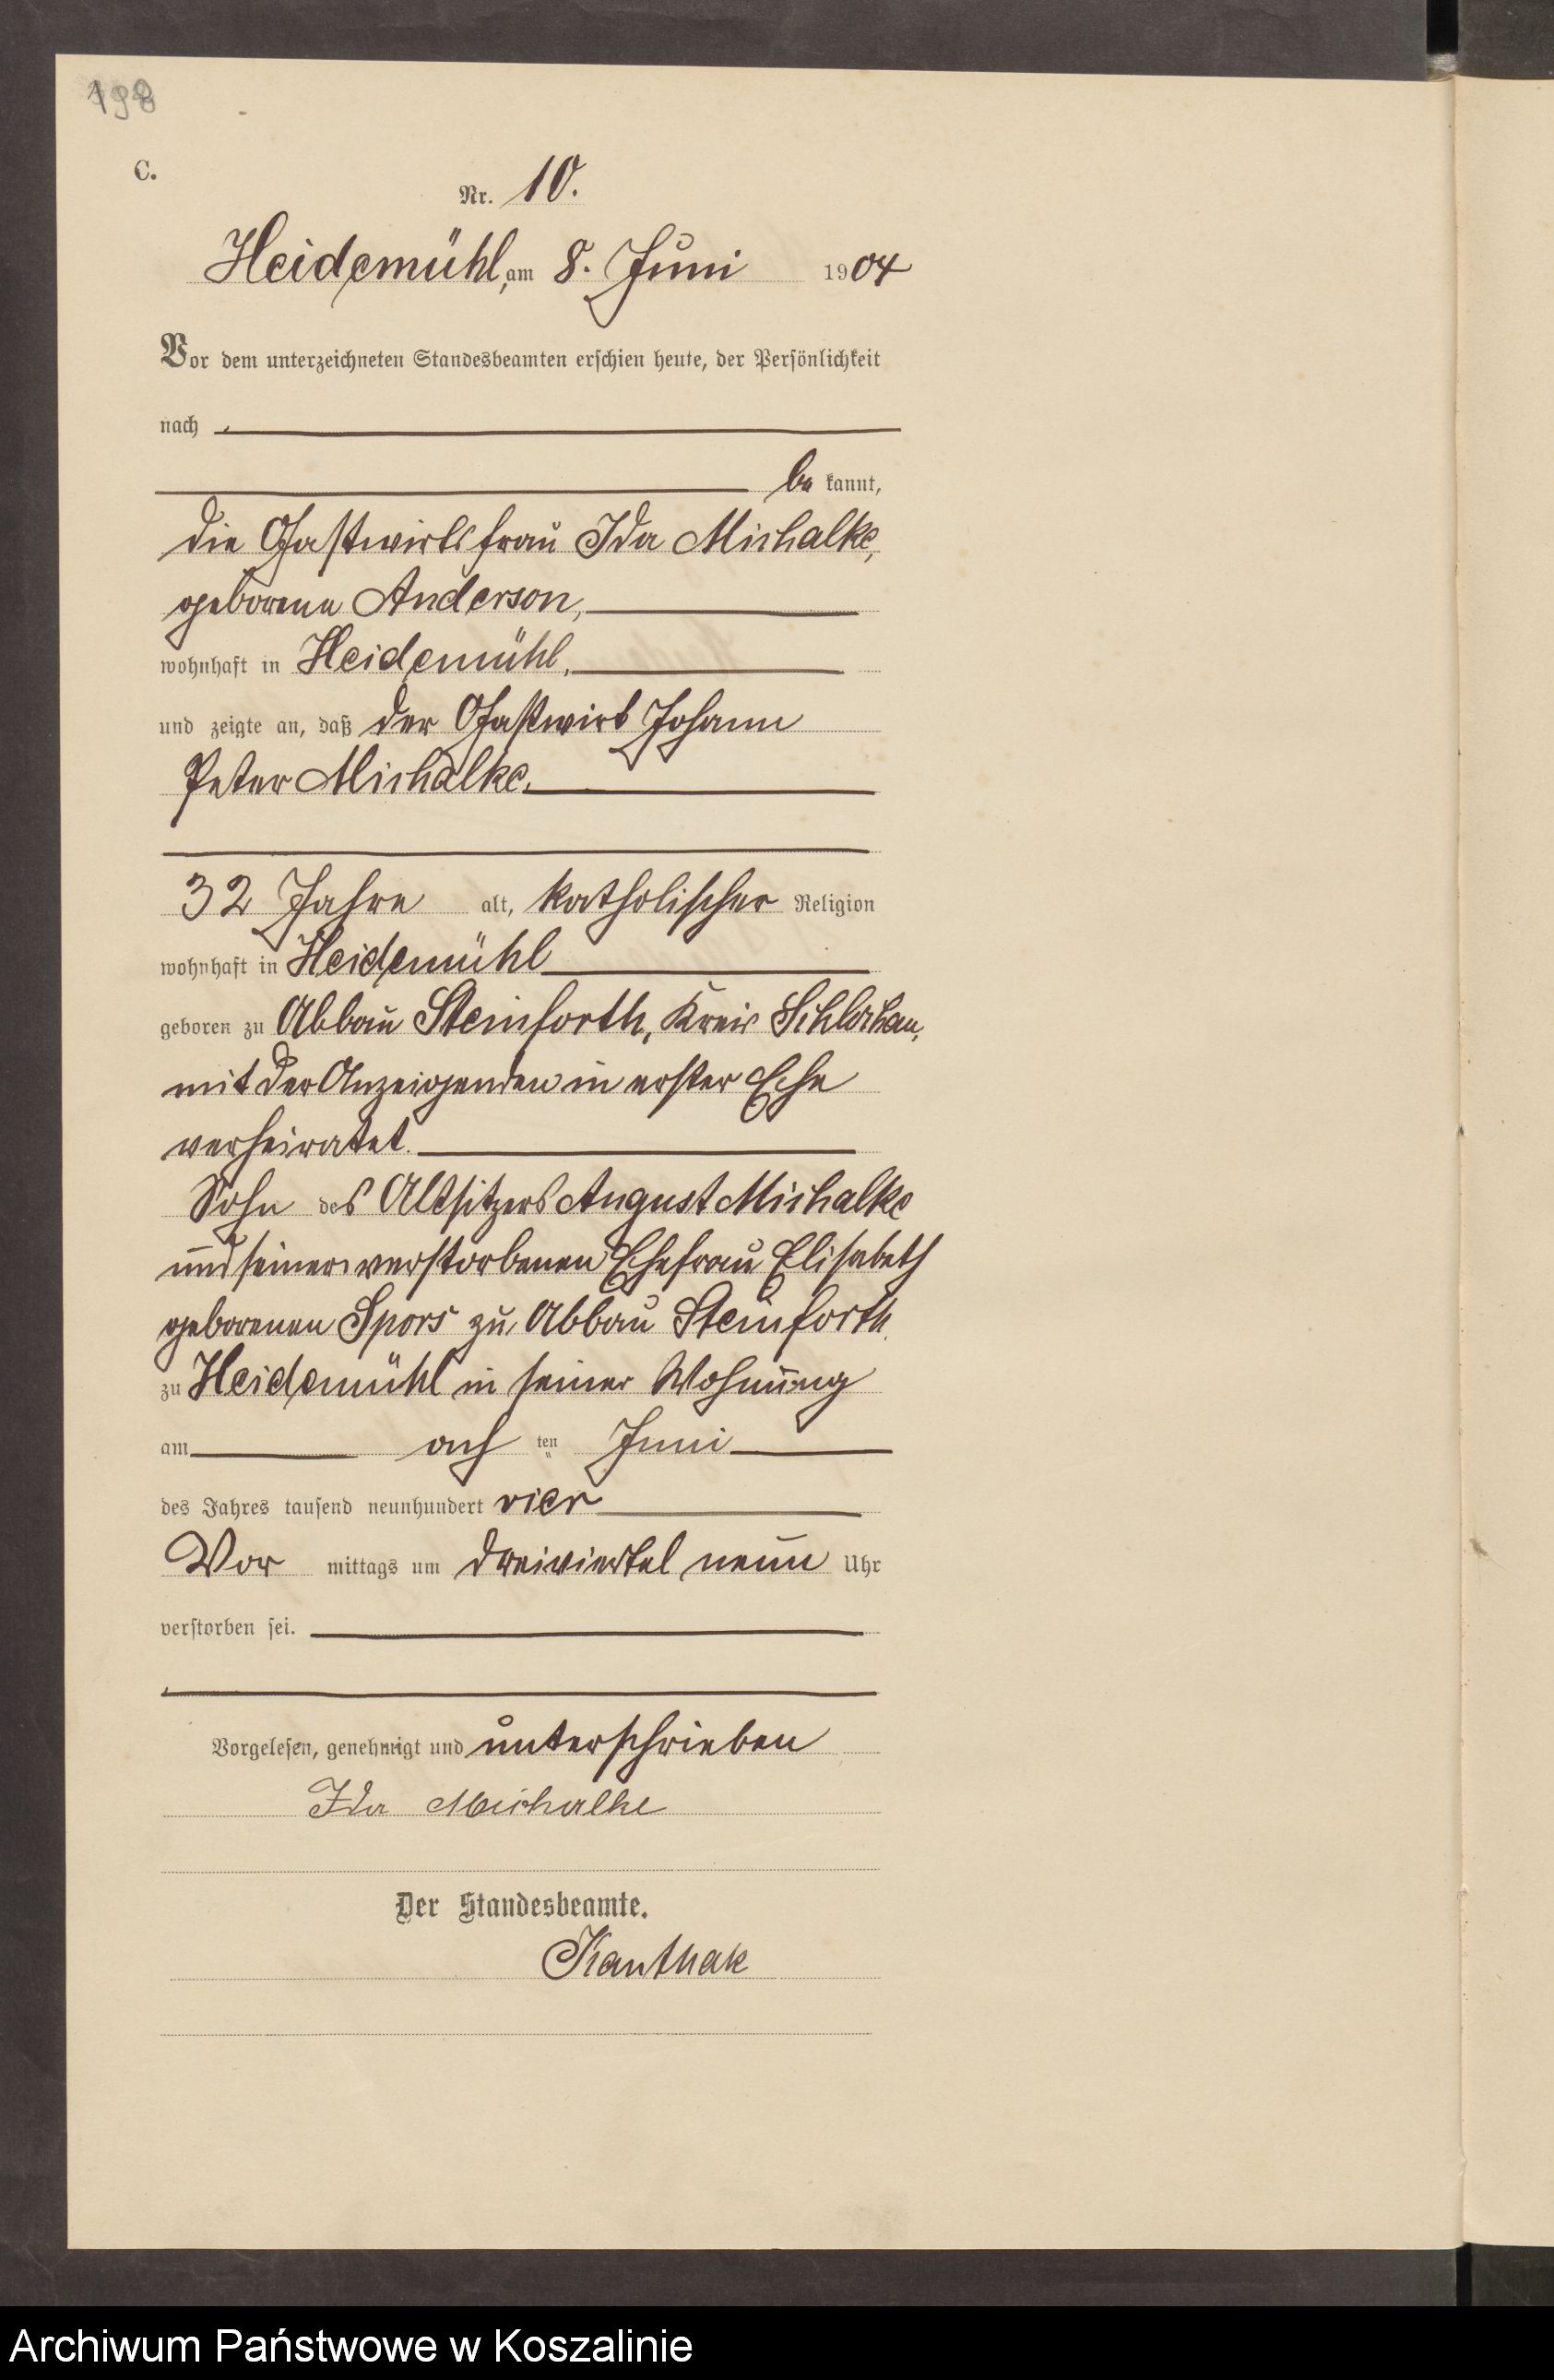 198
C.
Nr. 10.
Heidemühl, am 8. Juni 1904
Vor dem unterzeichneten Standesbeamten erschien heute, der Persönlichkeit
nach
be kannt,
die Gastwirtsfrau Ida Michalke,
geborene Anderson,
wohnhaft in Heidemühl,
und zeigte an, daß der Gastwirt Johann
Peter Michalke,
32 Jahre alt, katholischer Religion
wohnhaft in Heidemühl
geboren zu Abbau Steinforth, Kreis Schlochau,
mit der Anzeigenden in erster Ehe
verheiratet.
Sohn des Altsitzers August Michalke
und seiner verstorbenen Ehefrau Elisabeth
geborenen Spors zu Abbau Steinforth
zu Heidemühl in seiner Wohnung
am ach ten Juni
des Jahres tausend neunhundert vier
Vor mittags um dreiviertel neun Uhr
verstorben sei.
Vorgelesen, genehmigt und unterschrieben
Ida Michalke
Der Standesbeamte.
Kanthak
Archiwum Państwowe w Koszalinie